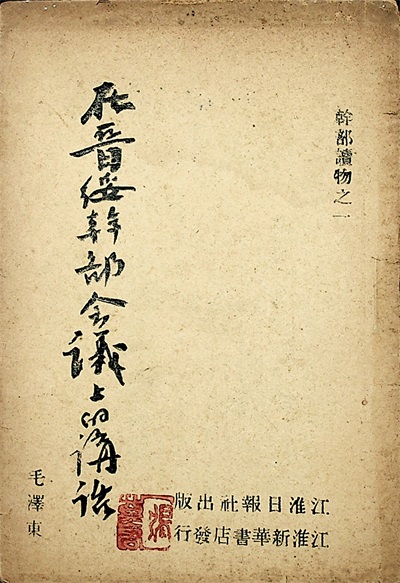 幹部讀物之一
在晋綏幹部会議上的講話
毛澤東
江淮日報社出版
江淮新華書店發行